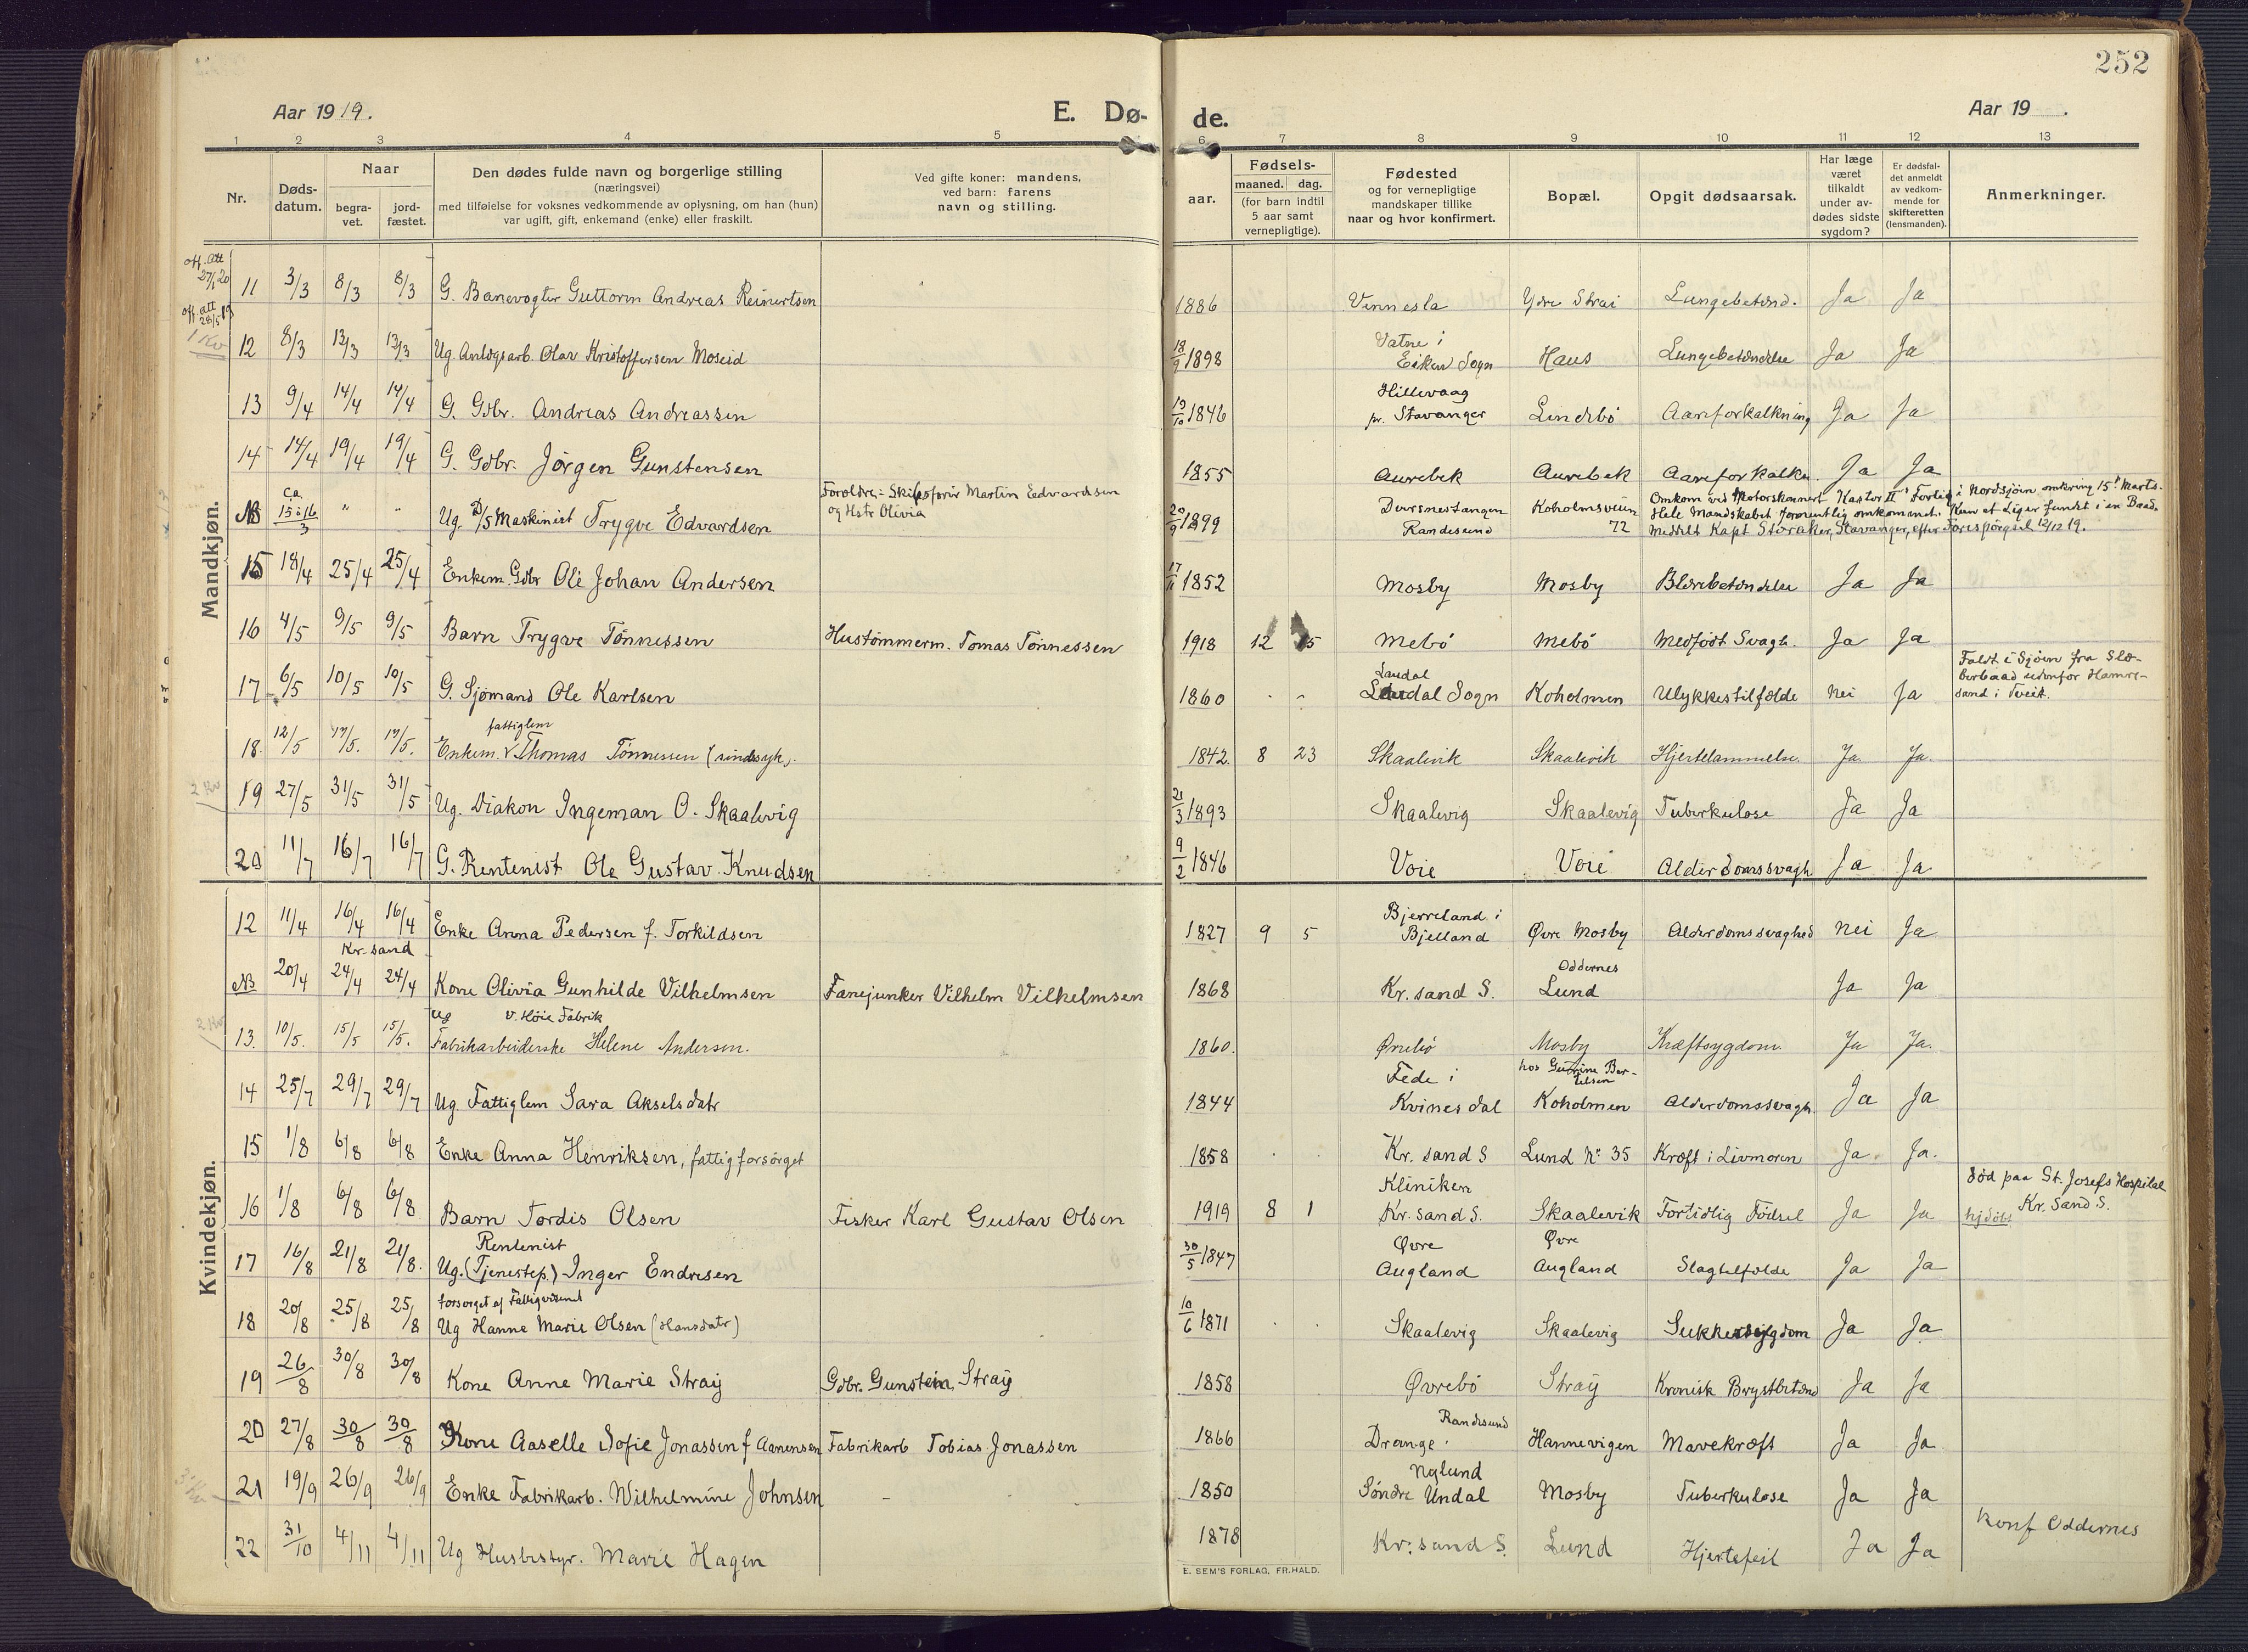 252
Aar 1919.
E. Dø-
de.
Aar 19 .
1 2 3 4 5 6 7 8 9 10 11 12 13
Nr.
Døds-
datum.
Naar
begra-
vet.
jord-
fæstet.
Den dødes fulde navn og borgerlige stilling
(næringsvei)
med tilføielse for voksnes vedkommende av oplysning, om han (hun)
var ugift, gift, enkemand (enke) eller fraskilt.
Ved gifte koner: mandens,
ved barn: farens
navn og stilling.
aar.
Fødsels-
maaned. dag.
(for barn indtil
5 aar samt
vernepligtige).
Fødested
og for vernepligtige
mandskaper tillike
naar og hvor konfirmert.
Bopæl.
Opgit dødsaarsak.
Har læge
været
tilkaldt
under av-
dødes sidste
sygdom?
Er dødsfal-
det anmeldt
av vedkom-
mende for
skifteretten
(lensmanden).
Anmerkninger.
Mandkjøn.
off. Att
27/1 20
11 3/3 8/3 8/3 G. Banevogter Guttorm Andreas Reinertsen 1886 Vennesla Ydre Strai Lungebetænd. Ja Ja
off. att
28/5 19
1 Kv
12 8/3 13/3 13/3 Ug. Anlægsarb. Olav Kristoffersen Moseid 18/9 1898 Vatne i
Eiken Sogn Haus Lungebetændelse Ja Ja
13 9/4 14/4 14/4 G. Gdbr. Andreas Andreassen 19/10 1846 Hillevaag
pr. Stavanger Lindebö Aareforkalkning Ja Ja
14 14/4 19/4 19/4 G. Gdbr. Jörgen Gunstensen 1855 Aurebek Aurebek Aareforkalkn. Ja Ja
NB ca. 15 à 16/3 " " Ug. D/S Maskinist Trygve Edvardsen Forældre: Martin Edvardsen
og Hstr Olivia 20/9 1899 Randesund Koholmsveien
72 Omkom ved Motorskonnert "Kastor II"s Forlig i Nordsjøen omkring 15de Marts.
Hele Mandskabet formentlig omkommet. Kun et Lig er fundet i en Baad.
Meddelt Kapt Storaker, Stavanger, efter Forespørgsel 12/12 19.
15 18/4 25/4 25/4 Enkem. Gdbr Ole Johan Andersen 17/11 1852 Mosby Mosby Blærebetændelse Ja Ja
16 4/5 9/5 9/5 Barn Trygve Tönnessen Hustömmerm. Tomas Tönnessen 1918 12 15 Mebö Mebö Medfödt Svagh. Ja Ja
17 6/5 10/5 10/5 G. Sjömand Ole Karlsen 1860 Laudal
Laudal Sogn Koholmen Ulykkestilfælde Nei Ja Faldt i Sjöen fra Slæ-
berbaad udenfor Hamre-
sand i Tveit.
18. 12/5 17/5. 17/5. fattiglem
Enkem. Thomas Tönnessen (sindssyk). 1842. 8 23 Skaalevik Skaalevik Hjertelammelse. Ja. Ja.
2 Kv
19 27/5 31/5 31/5 Ug. Diakon Ingeman O. Skaalevig 21/3 1893 Skaalevig Skaalevig Tuberkulose Ja Ja
20 11/7 16/7 16/7 G. Rentenist Ole Gustav Knudsen 9/2 1846 Voie Voie Alderdomssvagh Ja Ja
Kvindekjøn.
12 11/4 16/4 16/4 Enke Anna Pedersen f. Torkildsen 1827 9 5 Bjerreland i
Bjelland Øvre Mosby Alderdomssvaghed Nei Ja
Kr. sand
NB 20/4 24/4 24/4 Kone Olivia Gunhilde Vilhelmsen Fanejunker Vilhelm Vilhelmsen 1868 Kr. sand S. Oddernes
Lund Ja Ja
2 Kv
13. 10/5. 15/5 15/5. Ug v. Höie Fabrik
Fabrikarbeiderske Helene Andersen. 1860. Øvrebö Mosby Kræftsygdom. Ja Ja.
14 25/7 29/7 29/7 Ug. Fattiglem Sara Akselsdatr 1844 Fede i
Kvinesdal hos Gurine Ber-
telsen
Koholmen Alderdomssvagh Ja Ja
15 1/8 6/8 6/8 Enke Anna Henriksen, fattigforsörget 1858 Kr. sand S Lund No 35 Kræft i Livmoren Ja Ja.
16 1/8 6/8 6/8 Barn Tordis Olsen Fisker Karl Gustav Olsen 1919 8 1 Kliniken
Kr. sand S. Skaalevik Fortidlig Födsel Ja Ja död paa St. Josefs Hospital
Kr. Sand S.
hjdöbt
17 16/8 21/8 21/8. Rentenist
Ug. (Tjenestep.) Inger Endresen 30/5 1847 Øvre
Augland Øvre
Augland Slagtilfælde Ja Ja
18 20/8 25/8 25/8 forsörget af Fattigvæsenet
Ug Hanne Marie Olsen (Hansdatr) 10/6 1871 Skaalevig Skaalevig Sukkersygdom Ja Ja
19 26/8 30/8 30/8 Kone Anne Marie Straÿ Gdbr. Gunstein Straÿ 1858 Øvrebö Straÿ Kronisk Brystbetænd Ja Ja
20 27/8 30/8 30/8 Kone Aaselle Sofie Jonassen f Aanensen Fabrikarb Tobias Jonassen 1866 Randesund
Drange Hannevigen Mavekræft Ja Ja
3 Kv
21 19/9 26/9 26/9 Enke Fabrikarb. Wilhelmine Johnsen 1850 Nylund
Söndre Undal Mosby Tuberkulose Ja Ja
22 31/10 4/11 4/11 Ug Husbestyr. Marie Hagen 1878 Kr. sand S. Lund Hjertefeil Ja Ja Konf Oddernes
E. SEM'S FORLAG, FR.HALD.